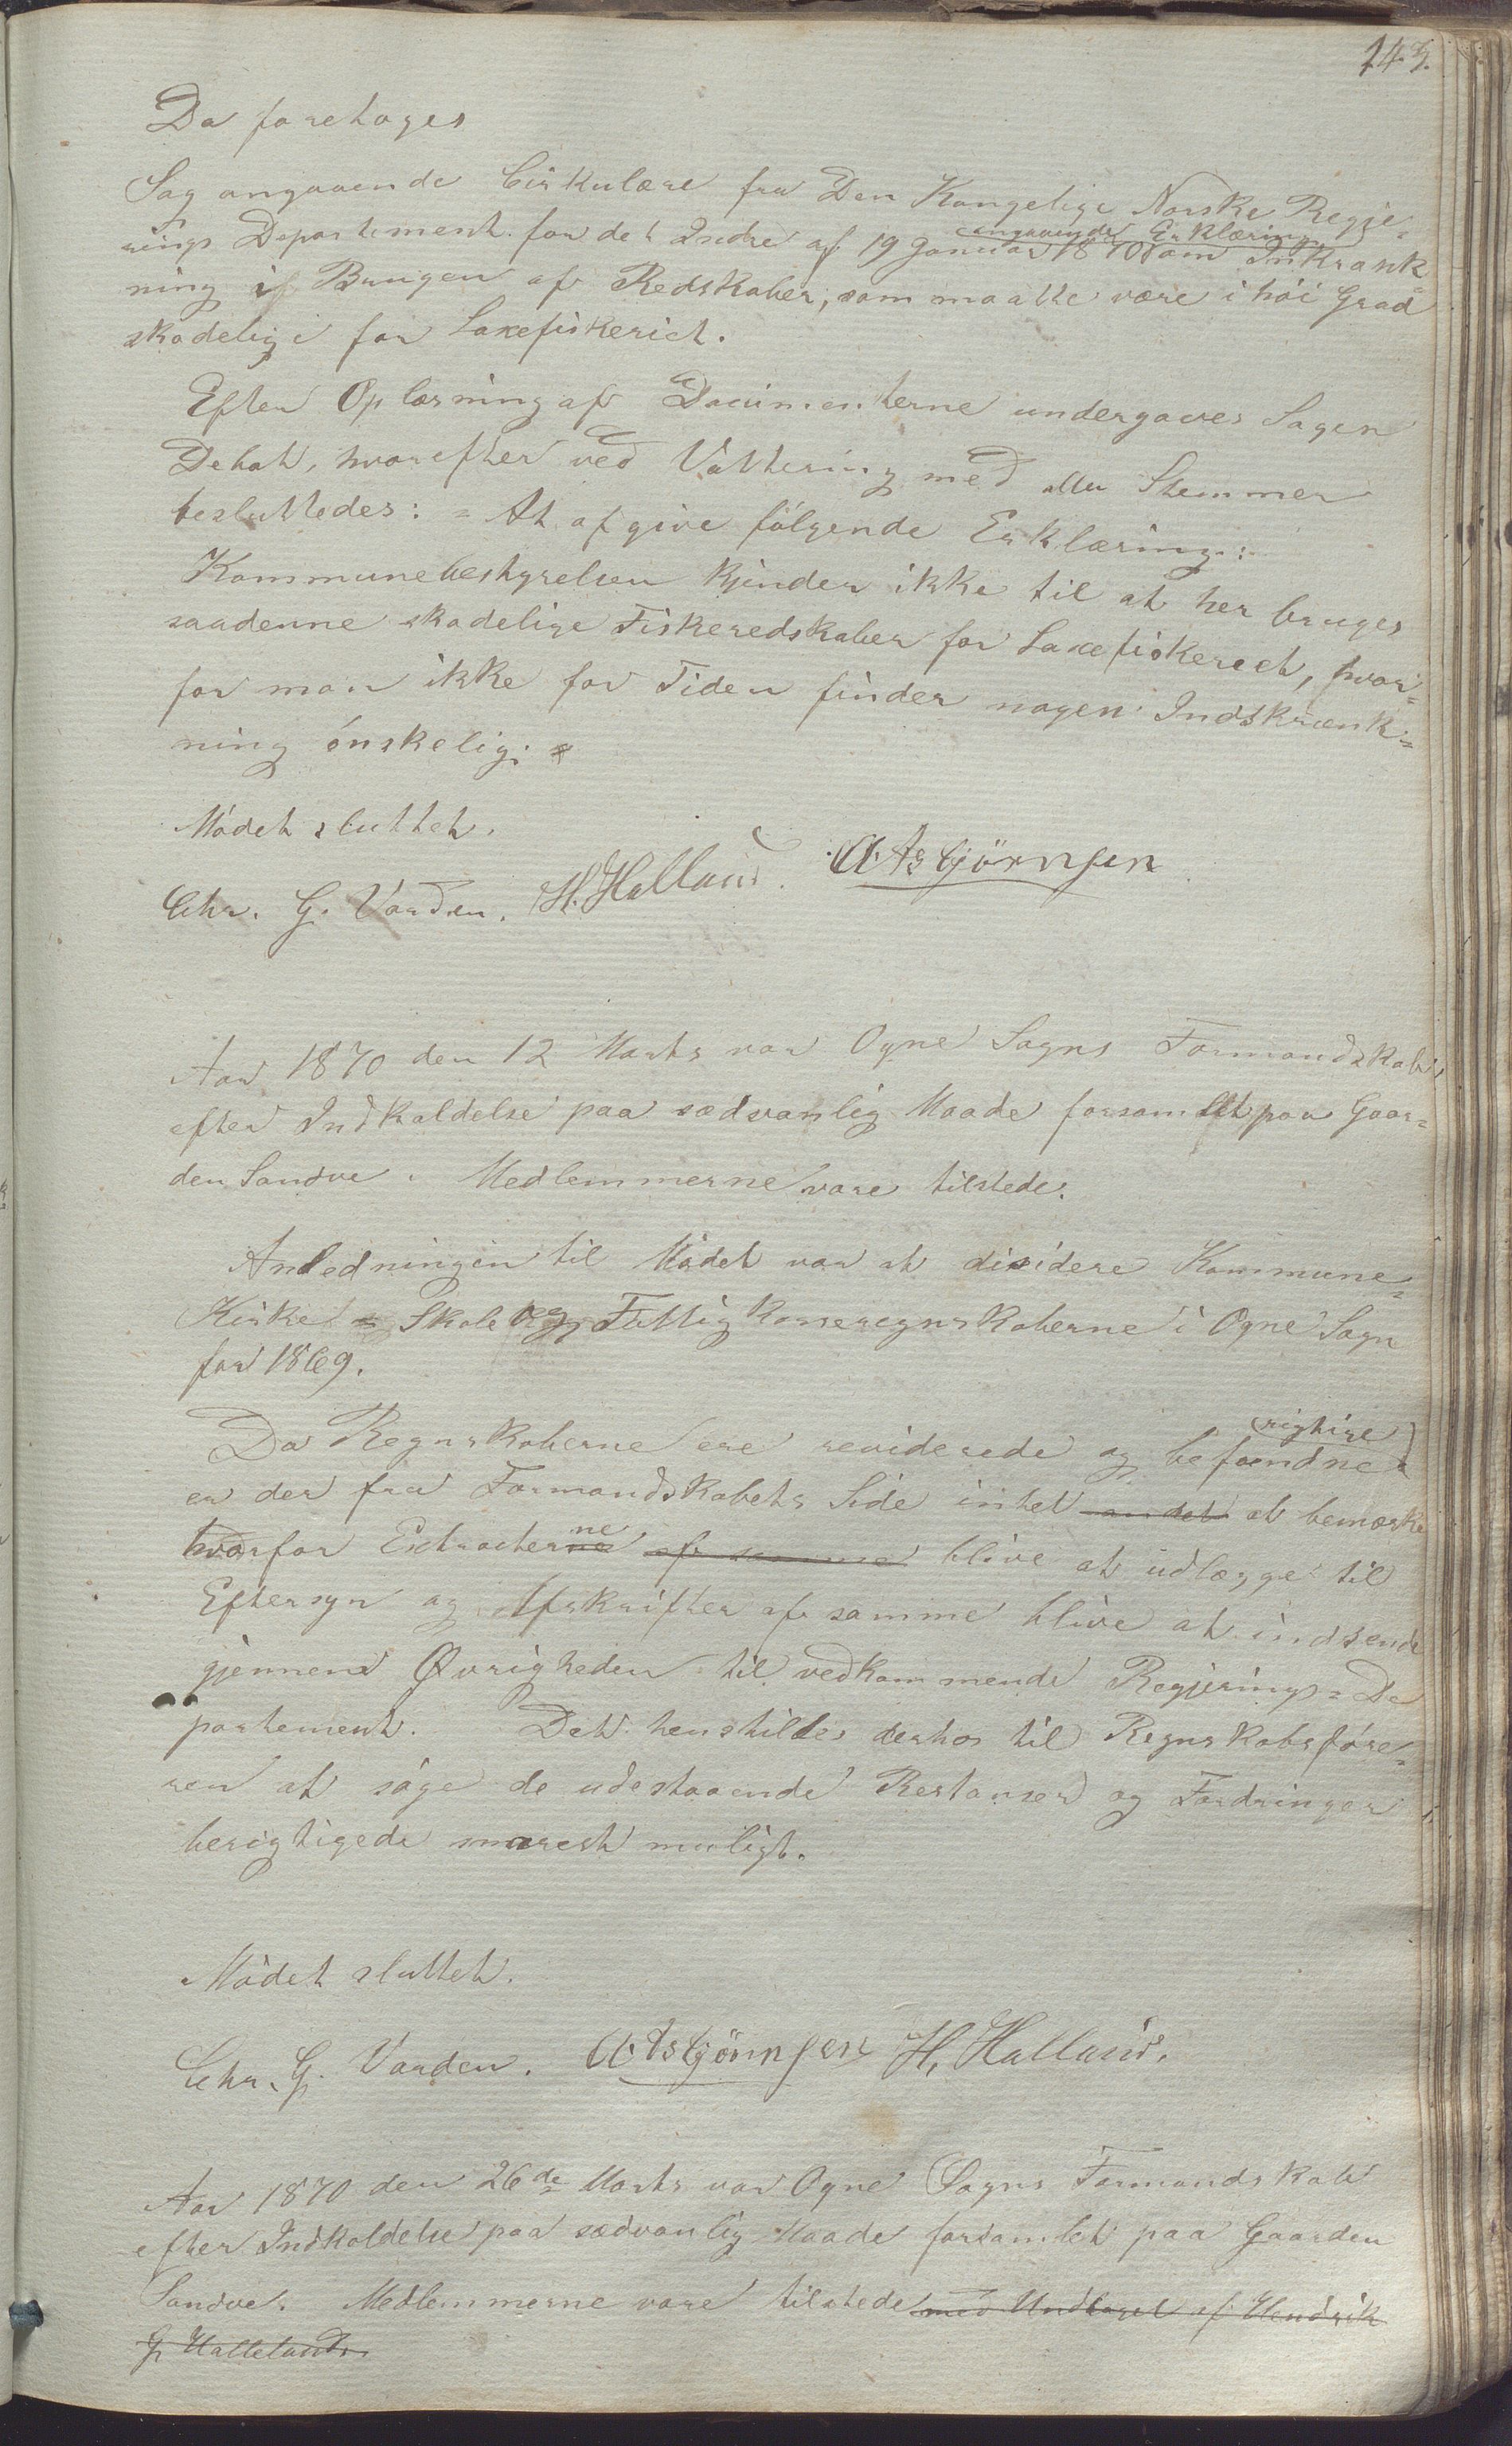 143.
Da foretoges
Sag angaaende Cirkulære fra Den Kongelige Norske Regje=
rings Departement for det Indre af 19 Januar 1870 angaaende Erklæring om Inskrænk=
ning i Brugen af Redskaber, som maatte være i höi Grad
skadelige for Laxefiskeriet.
Efter Oplæsning af Documenterne undergaves Sagen
Debat, hvorefter ved Vottering med alle Stemmer
besluttedes: = At afgive fölgende Erklæring:
Kommunebestyrelsen kjender ikke til at her bruges
saadenne skadelige Fiskeredskaber for Laxefiskeriet, hvor=
for man ikke for Tiden finder nogen Indskrænk=
ning önskelig.
Mödet sluttet.
Chr. G. Varden. H. Halland. A. Asbjörnsen
Aar 1870 den 12 Marts var Ogne Sogns Formandskab
efter Indkaldelse paa sædvanlig Maade forsamlet paa Gaar=
den Sandve. Medlemmerne vare tilstede.
Anledningen til Mödet var at disidere Kommune=
Kirke= Skole og Fattigkasseregnskaberne i Ogne Sogn
for 1869.
Da Regnskaberne ere reviderede og befundne rigtige
er der fra Formandskabets Side intet andet at bemærke
hvorfor Extracterne af samme blive at udlægge til
Eftersyn og Afskrifter af samme blive at indsende
gjennem Øvrigheden til vedkommende Regjerings= De
partement. Det henstilles derhos til Regnskabsföre=
ren at söge de udestaaende Restanser og Fordringer
berigtigede snarest muligt.
Mödet sluttet.
Chr. G. Varden. A. Asbjörnsen H. Halland.
Aar 1870 den 26de Marts var Ogne Sogns Formandskab
efter Indkaldelse paa sædvanlig Maade forsamlet paa Gaarden
Sandve. Medlemmerne vare tilstede med Undtagel af Hendrik
G. Halleland